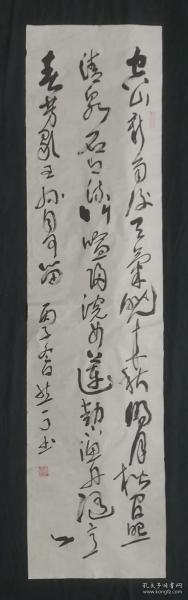 空山新雨后天气晚来秋明月松间照
清泉石上流竹喧归浣女莲动渔舟随意
春芳歇王孙自可留 丙子春 书